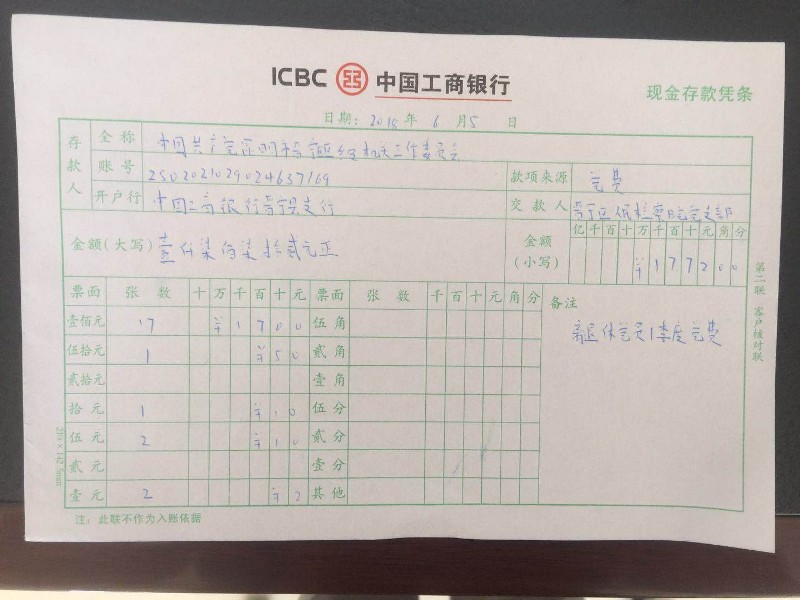 ICBC 中国工商银行
现金存款凭条
日期: 2018 年 6 月 5 日
存款人 全称 中国共产党昆明市晋宁区级机关工作委员会
账号 2502021029024637169 款项来源 党费
开户行 中国工商银行晋宁县支行 交款人 晋宁区人民检察院党支部
金额(大写) 壹仟柒佰柒拾贰元正 金额(小写) 亿千百十万千百十元角分
¥177200
票面 张数 十万千百十元 票面 张数 千百十元角分 备注
壹佰元 17 ¥1700 伍角
离退休党员1季度党费
伍拾元 1 ¥50 贰角
贰拾元 壹角
拾元 1 ¥10 伍分
伍元 2 ¥10 贰分
贰元 壹分
壹元 2 ¥2 其他
注: 此联不作为入账依据
第二联 客户核对联